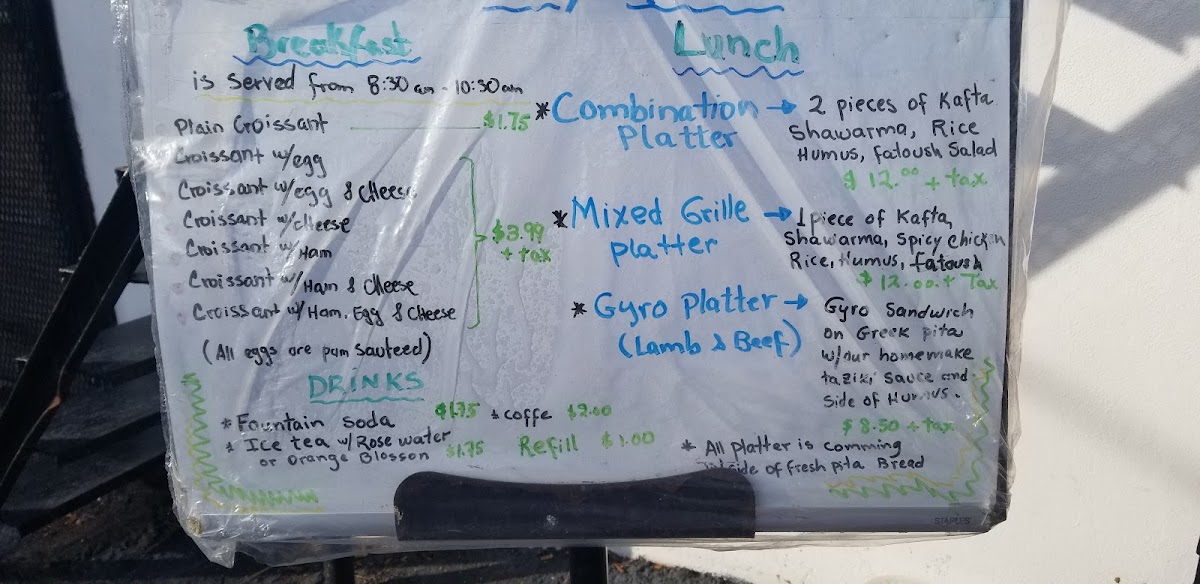 Breakfast
is served from 8:30 am - 10:30 am
Plain Croissant $1.75
Croissant w/egg
Croissant w/egg & Cheese
Croissant w/cheese
Croissant w/ Ham
Croissant w/ Ham & Cheese
Croissant w/ Ham, Egg & Cheese
$3.99
+ tax
(All eggs are pam sauteed)
DRINKS
* Fountain soda $1.75 * coffe $2.00
* Ice tea w/ Rose water
or Orange Blosson $1.75 Refill $1.00
Lunch
* Combination → 2 pieces of Kafta
Platter Shawarma, Rice
Humus, fatoush Salad
$12.00 + tax
* Mixed Grille → 1 piece of Kafta,
platter Shawarma, Spicy chicken
Rice, Humus, fatoush
$12.00 + Tax
* Gyro Platter → Gyro Sandwich
(Lamb & Beef) on Greek pita
w/our homemake
taziki sauce and
side of Humus.
$8.50 + tax
* All platter is comming
side of fresh pita Bread
STAPLES